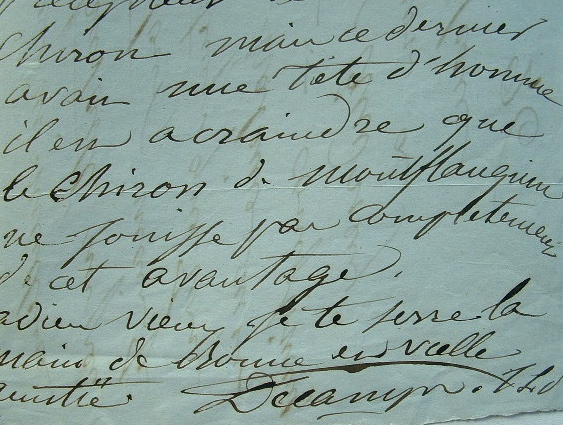 Chiron mais ce dernier
avait une tête d'homme
il est a craindre que
le Chiron de Montflanquin
ne jouisse pas complètement
de cet avantage.
adieu vieux je te serre la
main de bonne et vielle
amitié. Decamps.